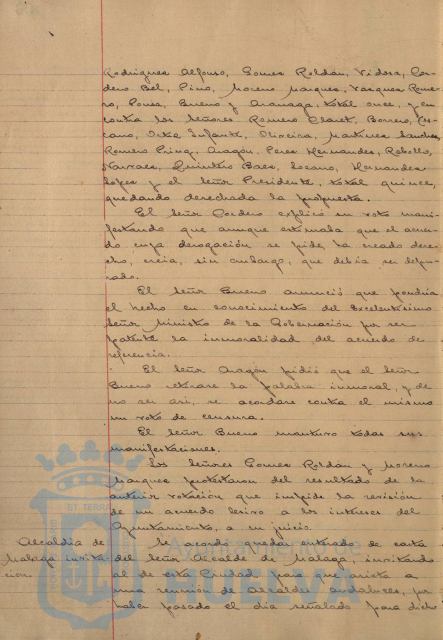 Rodriguez Alfonso, Gomez Roldán, Vidosa, Cor-
dero Bel, Pino, Moreno Marquez, Vazquez Rome-
ro, Ponce, Bueno y Aranaga, total once, y en
contra los Señores Romero Claret, Borrero, Ces-
cano, Ortiz Infante, Oliveira, Martinez Sanchez,
Romero Pérez, Aragón, Perez Hernandez, Rebollo,
Narvaez, Quintero Baez, Lozano, Hernandez
Lopez y el Señor Presidente, total quince,
quedando desechada la propuesta.
El Señor Cordero explicó su voto mani-
festando que aunque estimaba que el acuer-
do cuya derogación se pide, ha creado dere-
cho, creía, sin embargo, que debía ser depu-
rado.
El Señor Bueno anunció que pondría
el hecho en conocimiento del Excelentísimo
Señor Ministro de la Gobernación por ser
patente la inmoralidad del acuerdo de
referencia.
El Señor Aragón pidió que el Señor
Bueno retirare la palabra inmoral, y de
no ser así, se acordare contra el mismo
un voto de censura.
El Señor Bueno mantuvo todas sus
manifestaciones.
Los Señores Gomez Roldán y Moreno
Marquez protestaron del resultado de la
anterior votación que impide la revisión
de un acuerdo lesivo a los intereses del
Ayuntamiento, a su juicio.
Alcaldía de
Malaga invita-
cion.
Se acordó quedar enterado de carta
del Señor Alcalde de Málaga, invitando
al de esta Ciudad para que asista a
una reunión de Alcaldes andaluces, por
haber pasado el día señalado para dicho